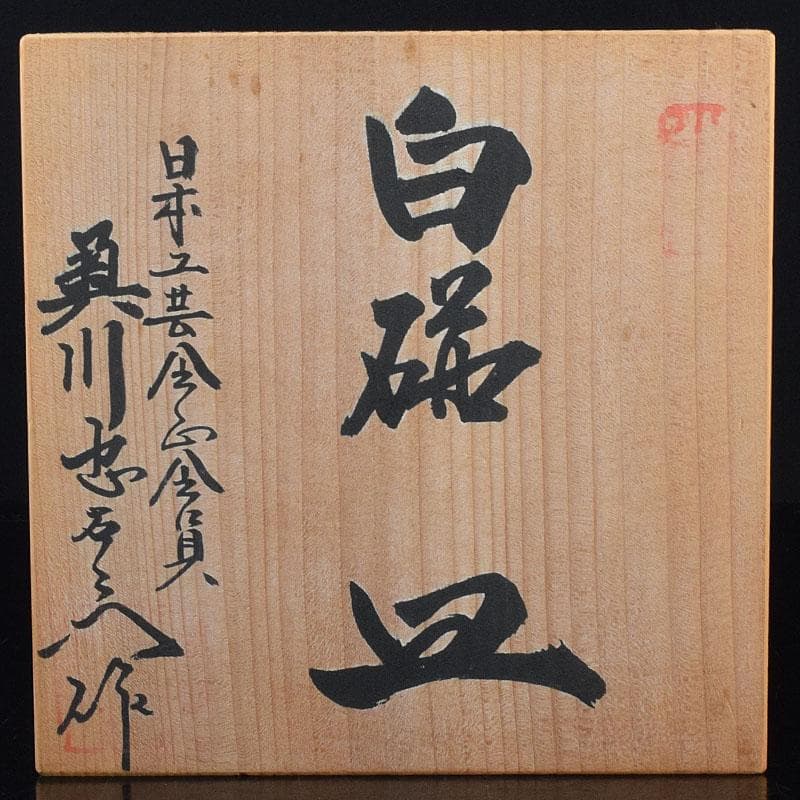 白磁皿
日本工芸会正会員
奥川忠右エ門作